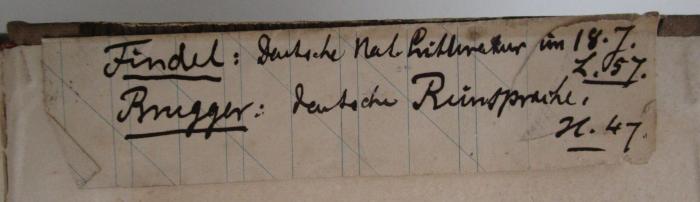 Findel: Deutsche Nat Litteratur im 18. J.
L. 57.
Brugger: deutsche Reinsprache.
H. 47.